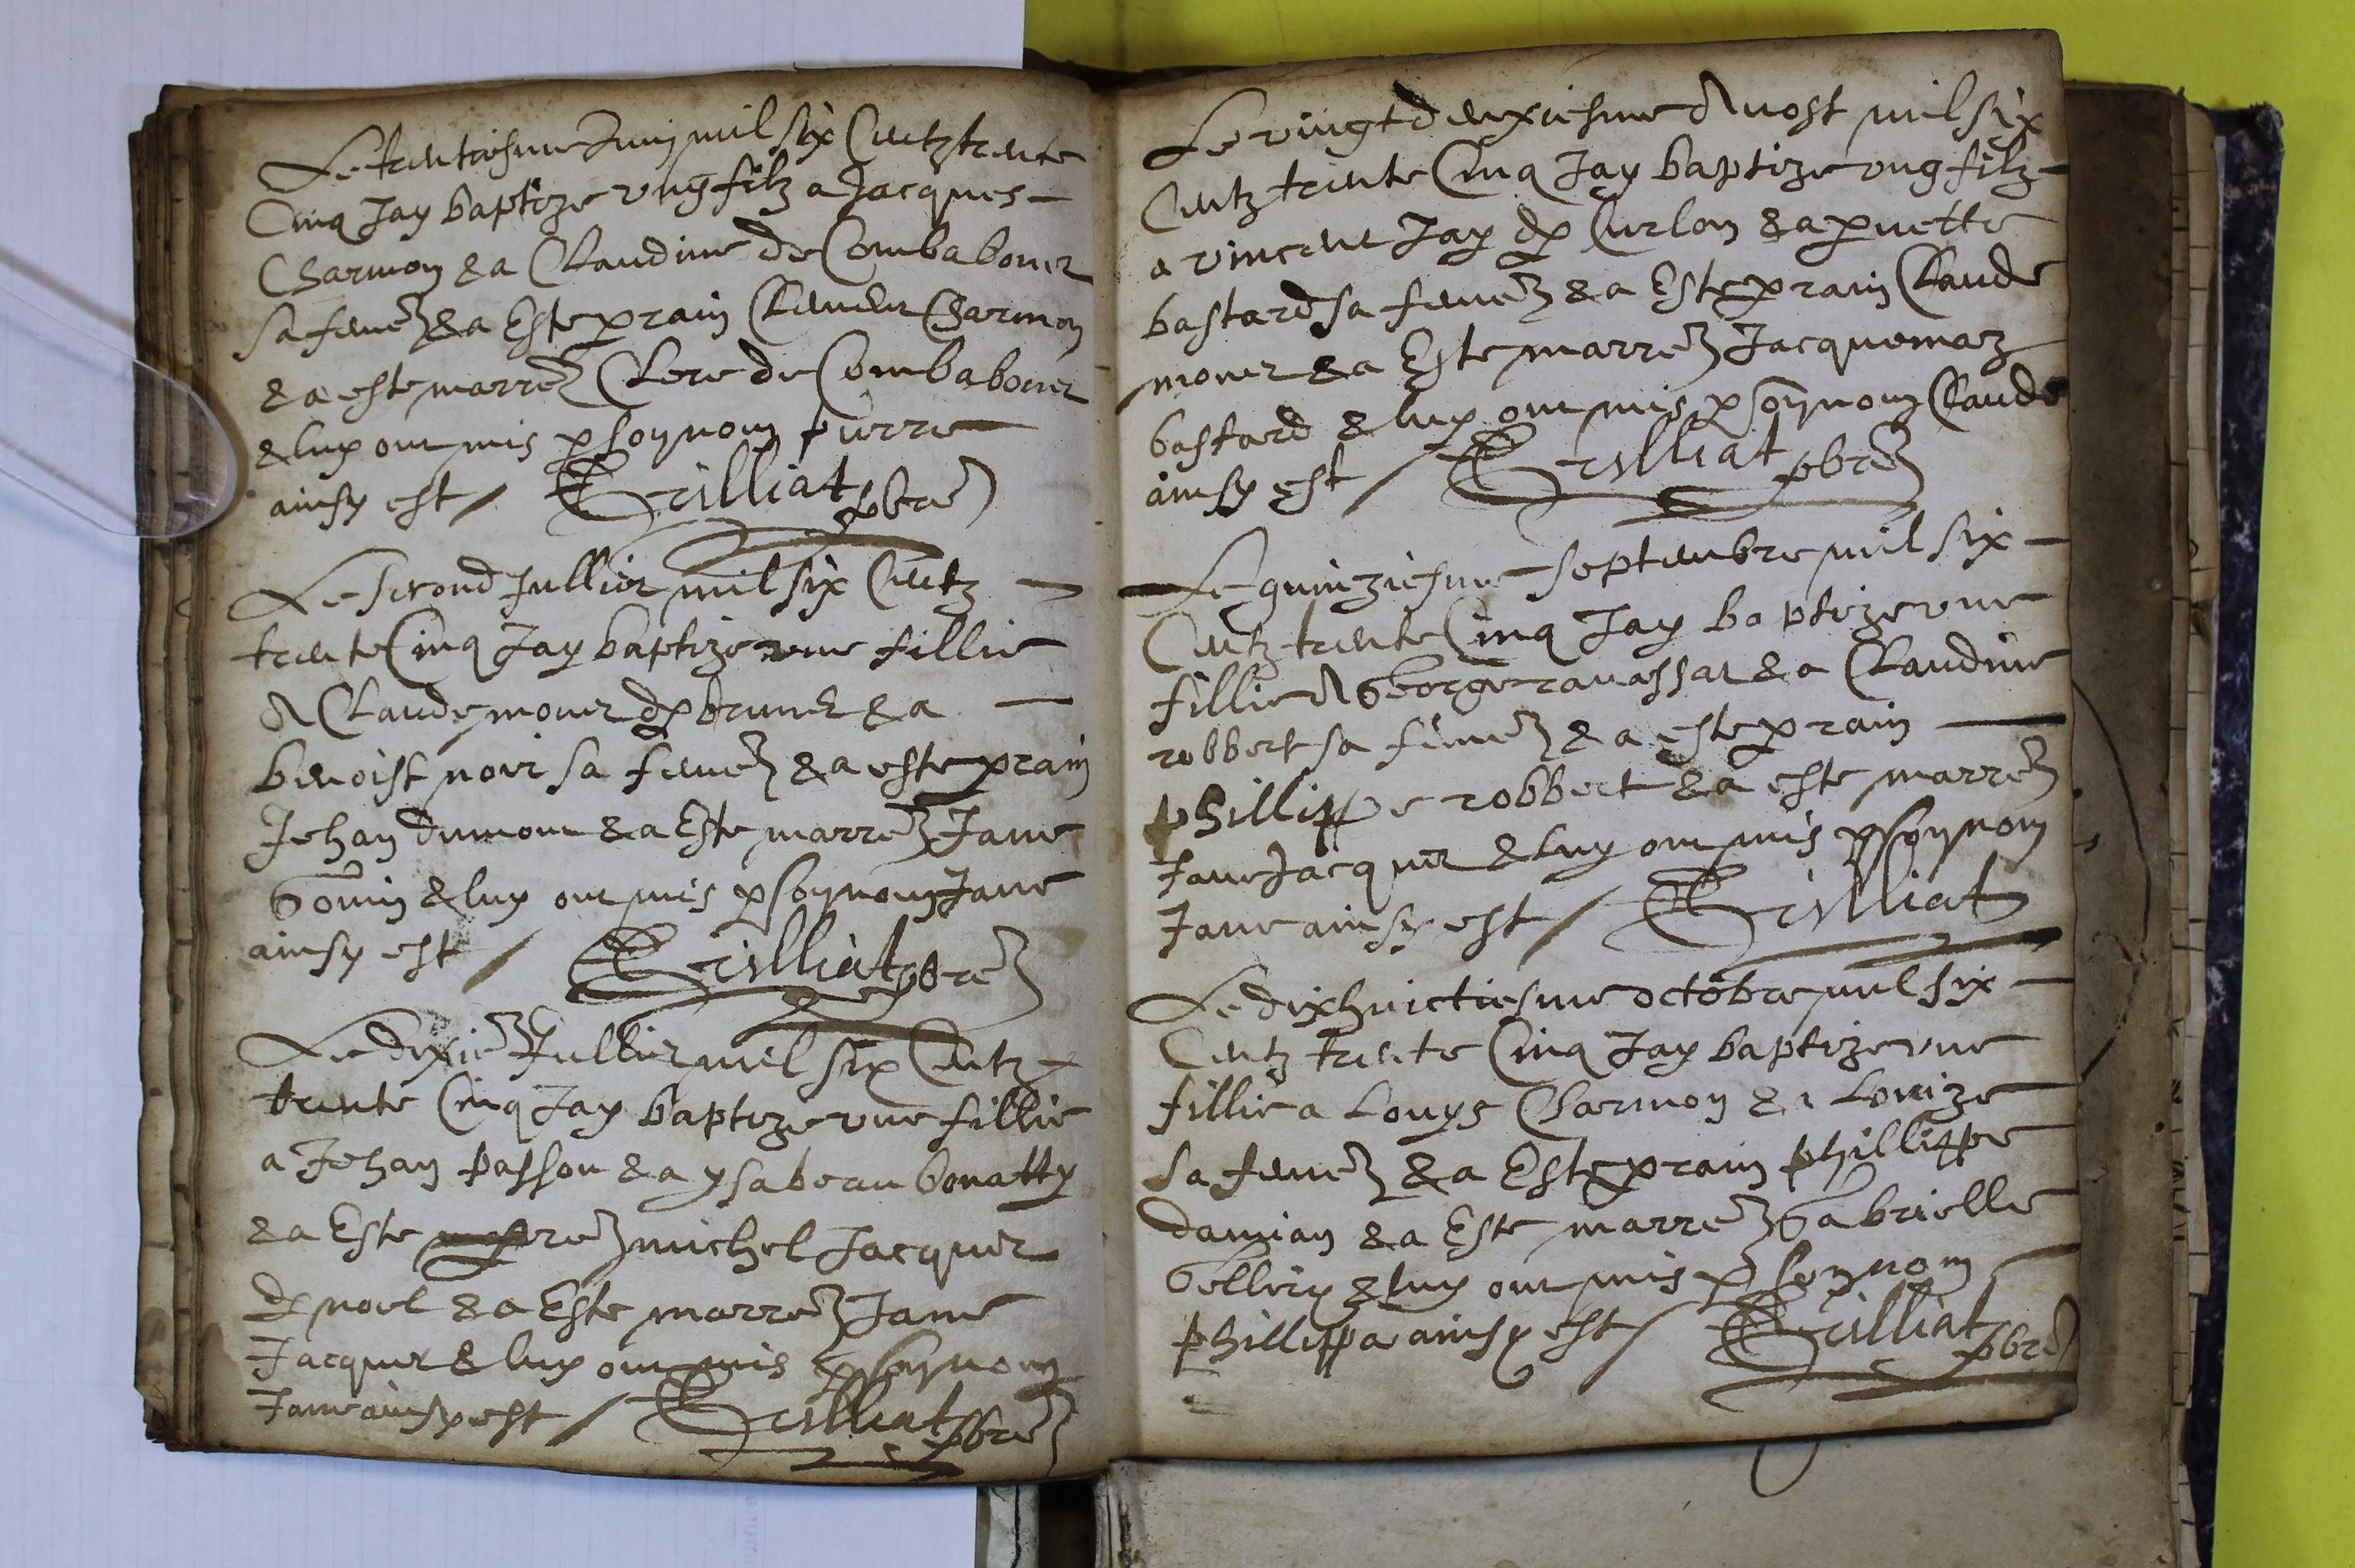 Le trentiesme Juing mil six Centz trente
Cinq Jay baptize ung filz a Jacques –
Charmon & a Claudine de Combabonet
sa feme & a Este prain Clement Charmon
& a este marre Clere de Combabonet
& luy ont mis p soynom pierre
ainsy est / Trilliat pbre
Le second Jullier mil six Centz –
trente Cinq Jay baptize une fillie
A Claude monet dp brunet & a –
benoist noir sa feme & a este prain
Jehan dumont & a Este marre Jane
& luy ont mis p soynom Jane
ainsy est / Trilliat pbre
Le dixie Jullier mil six Centz
trente Cinq Jay baptize une fillie
a Jehan passon & a ysabeau bonatty
& a Este michel Jacquet
dp noel & a Este marre Jane
Jacquet & luy ont mis p soynom
Jane ainsy est / Trilliat pbre
Le vingt deuxiesme Auost mil six
Centz trente Cinq Jay baptize ung filz –
a vincent Jay dp Curlon & a pnette
bastard sa feme & a Este prain Claude
monet & a Este marre Jacquemaz
bastard & luy ont mis p soynom Claude
ainsy est / Trilliat pbre
Le quinziesme septembre mil six –
Centz trente Cinq Jay baptize une
fillie A George ravassat & a Claudine
robbert sa feme & a este prain –
phillippe robbert & a este marre
Jane Jacquet & luy ont mis p soynom
Jane ainsy est / Trilliat
Le dixhuictiesme octobre mil six –
Centz trente Cinq Jay baptize une
fillie a Louys Charmon & a Louize
sa feme & a Este prain phillippe
damian & a Este marre Gabrielle
& luy ont mis p soynom
phillippa ainsy est / Trilliat pbre